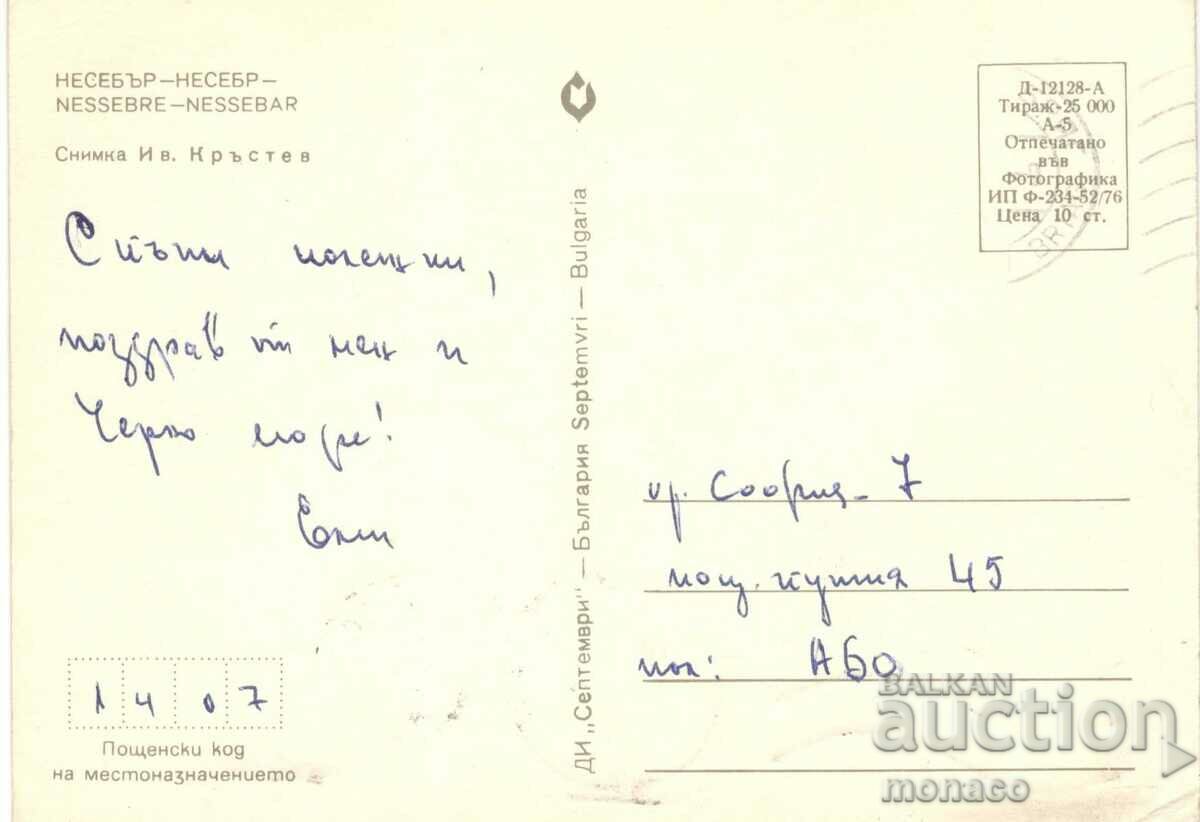 НЕСЕБЪР—НЕСЕБР—
NESSEBRE—NESSEBAR
Снимка Ив. Кръстев
поздрав от мен и
Черно море!
1 4 0 7
Пощенски код
на местоназначението
ДИ „Септември" — България Septemvri — Bulgaria
Д-12128-А
Тираж-25 000
А-5
Отпечатано
във
Фотографика
ИП Ф-234-52/76
Цена 10 ст.
гр. София - 7
пощ. кутия 45
АБО
BALKAN
auction
monaco